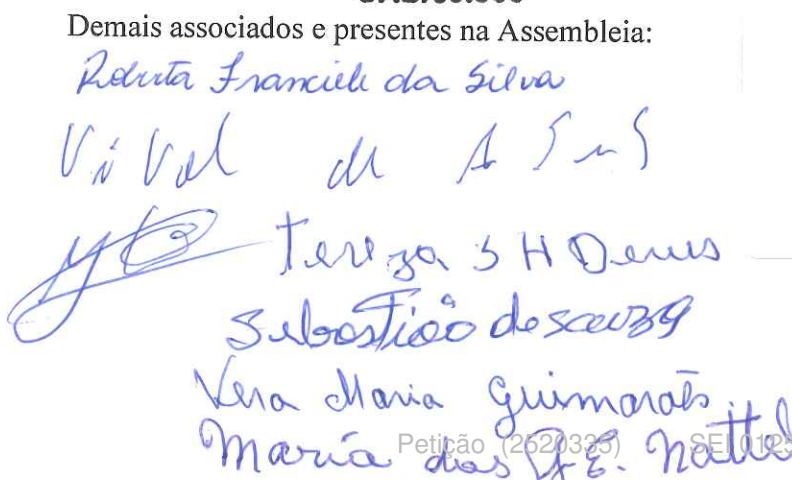 Demais associados e presentes na Assembleia:
Roberta Franciele da Silva
de A
Tereza S H Denus
Sebastião de souza
Vera Maria Guimarães
Maria das G E. Nattel
Petição (2520335) SEI 0125